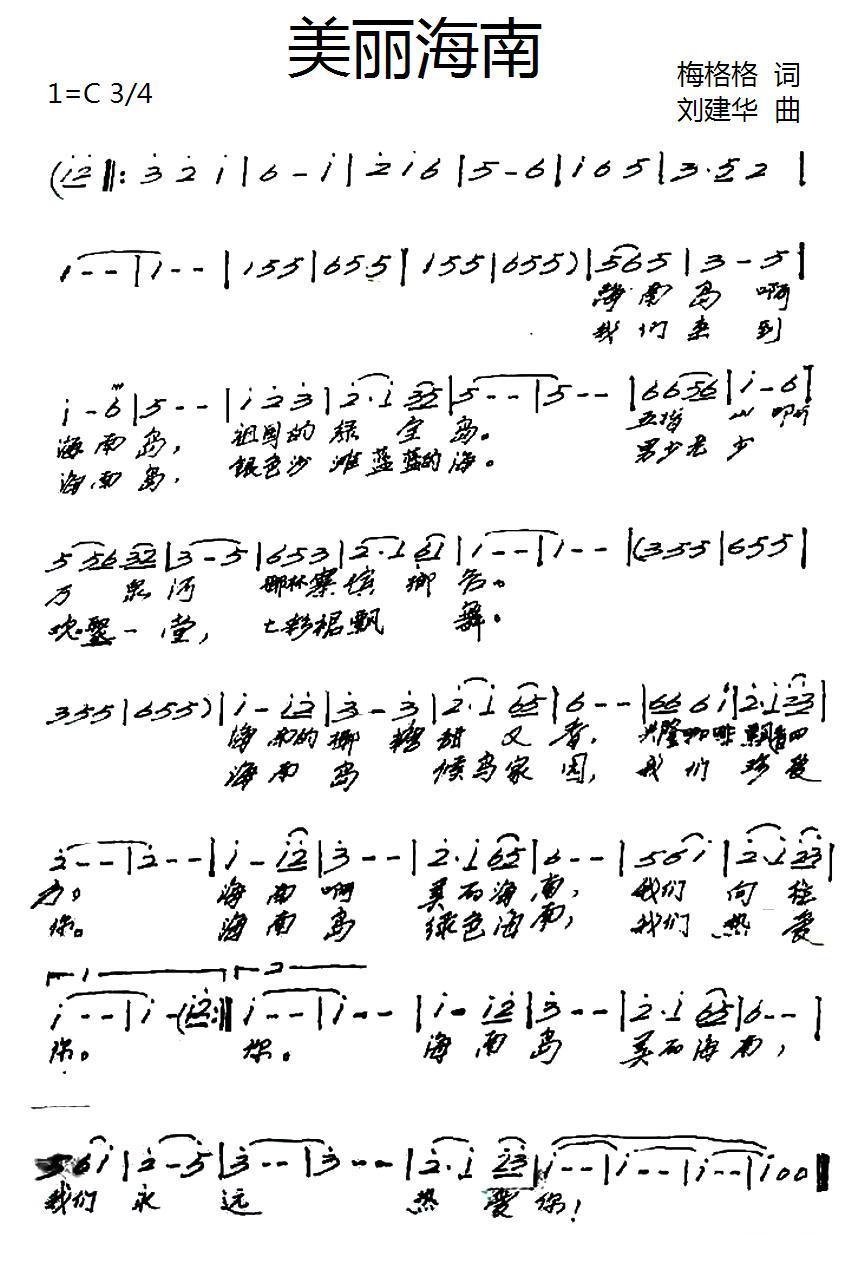 美丽海南
1=C 3/4
梅格格 词
刘建华 曲
(i̲̇2̲̇ ‖: 3̇ 2̇ i | 6 - i | 2̇ i 6 | 5 - 6 | i 6 5 | 3 · 5̲ 2 |
1 - - | 1 - - | 1 5 5 | 6 5 5 | 1 5 5 | 6 5 5 ) | 5 6 5 | 3 - 5 |
海 南 岛 啊
我 们 来 到
i - 6 | 5 - - | i 2̇ 3̇ | 2̇ · i 3̲5̲ | 5 - - | 5 - - | 6 6 5̲6̲ | i - 6 |
海 南 岛， 祖国的 绿 宝 岛。 五指 山 啊
海 南 岛， 银色沙 滩 蓝 蓝的 海。 男少老 少
5 5̲6̲ 3̲2̲ | 3 - 5 | 6 5 3 | 2 · 1 6̲1̲ | 1 - - | 1 - - | (3 5 5 | 6 5 5 |
万 泉 河 椰林寨
一 堂， 七彩裙飘 舞。
3 5 5 | 6 5 5 ) | i - i̲2̲̇ | 3̇ - 3̇ | 2̇ · i 6̲5̲ | 6 - - | 6̲6̲ 6 i | 2̇ · i 2̲̇3̲̇ |
海 南的 椰 糖 甜 又 香， 兴隆咖啡 飘香四
海 南 岛 候鸟家 园， 我 们 珍 爱
2̇ - - | 2̇ - - | i - i̲2̲̇ | 3̇ - - | 2̇ · i 6̲5̲ | 6 - - | 5 6 i | 2̇ · i 2̲̇3̲̇ |
方。 海 南 啊 美丽海 南， 我们 向 往
你。 海 南 岛 绿色海 南， 我们 热 爱
1 2
i - - | i - (i̲2̲̇ :‖ i - - | i - - | i - i̲2̲̇ | 3̇ - - | 2̇ · i 6̲5̲ | 6 - - |
你。 你。 海 南 岛 美丽海 南，
5 6 i | 2̇ - 5 | 3̇ - - | 3̇ - - | 2̇ · i 2̲̇3̲̇ | i - - | i - - | i - - | i 0 0 ‖
我们 永 远 热 爱 你！